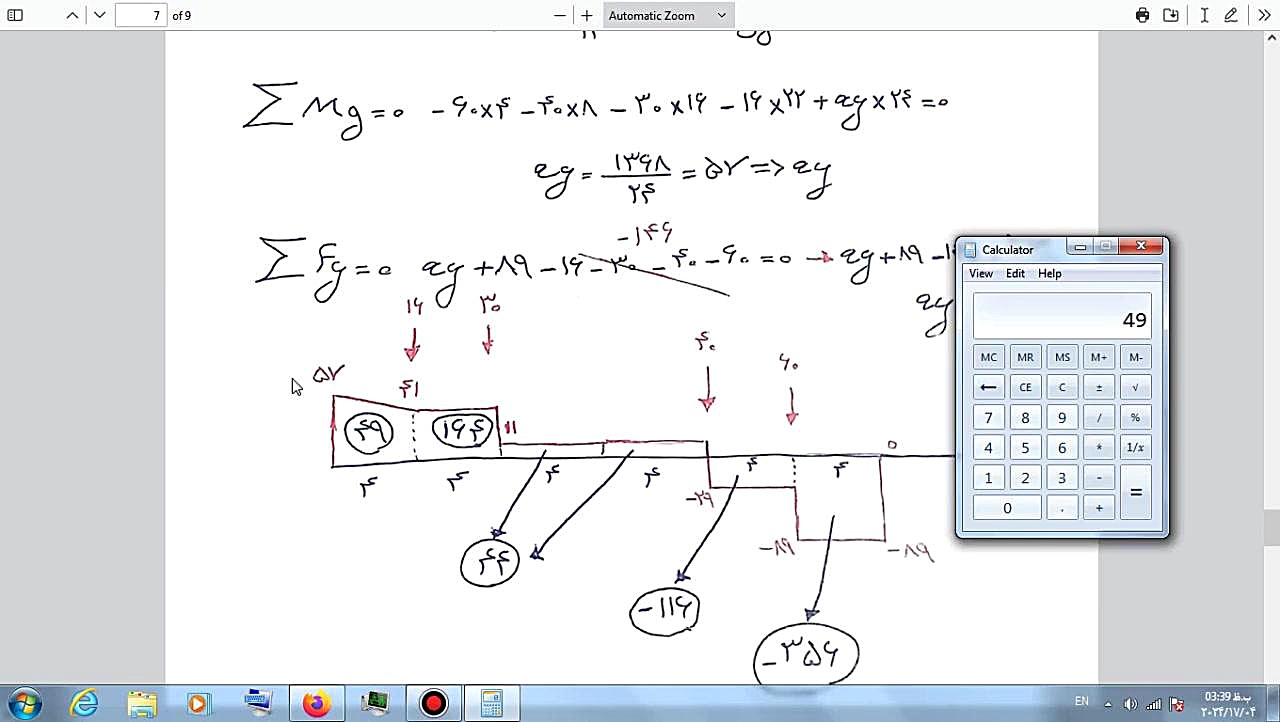 7 of 9
Automatic Zoom
∑ My = 0 - ۶۰×۴ - ۴۰×۸ - ۳۰×۱۶ - ۱۶×۲۲ + ay×۲۴ = 0
ay = ۱۳۶۸/۲۴ = ۵۷ => ay
-۱۴۶
∑ Fy = 0 ay + ۸۹ - ۱۶ - ۳۰ - ۴۰ - ۶۰ = 0 → ay + ۸۹ - ۱۴
ay
۱۶ ۳۰ ۴۰ ۶۰
۵۷ ۴۱ ۱۱ ۰
۴۹ ۱۶۴
۴ ۴ ۴ ۴ ۴ ۴
-۲۹ -۸۹ -۸۹
۴۴ -۱۱۶ -۳۵۶
Calculator
View Edit Help
49
MC MR MS M+ M-
← CE C ± √
7 8 9 / %
4 5 6 * 1/x
1 2 3 - =
0 . +
EN
03:39 ب.ظ
۲۰۲۴/۱۷/۰۴